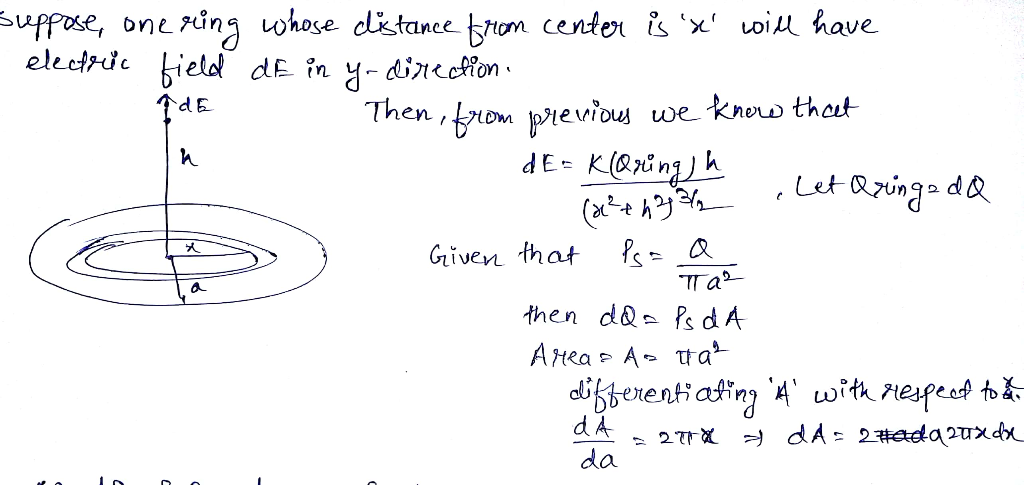 Suppose, one ring whose distance from center is 'x' will have
electric field dE in y-direction.
dE
Then, from previous we know that
h
dE = K(Qring) h / (x² + h²)^3/2 , Let Qring = dQ
x
a
Given that ρs = Q / πa²
then dQ = ρs dA
Area = A = πa²
differentiating 'A' with respect to x.
dA/da = 2πx ⇒ dA = 2πada 2πxdx